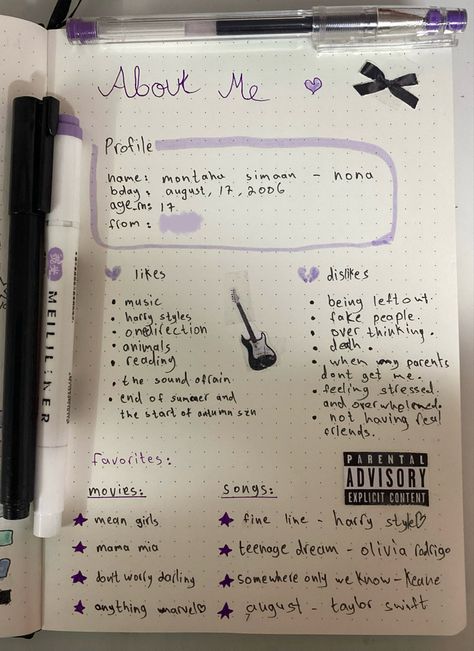 About Me
Profile
name: montaha simaan - nona
bday: august, 17, 2006
age rn: 17
from:
likes
• music
• harry styles
• onedirection
• animals
• reading
• the sound ofrain.
• end of summer and
the start of autumn szn
dislikes
• being left out.
• fake people.
• over thinking.
• death.
• when my parents
dont get me.
• feeling stressed
and overwhelmed.
• not having real
friends.
favorites:
movies:
★ mean girls
★ mama mia
★ don't worry darling
★ anything marvel♡
songs:
★ fine line - harry style♡
★ teenage dream - olivia rodrigo
★ somewhere only we know - Keane
★ august - taylor swift
PARENTAL
ADVISORY
EXPLICIT CONTENT
MEILILINER